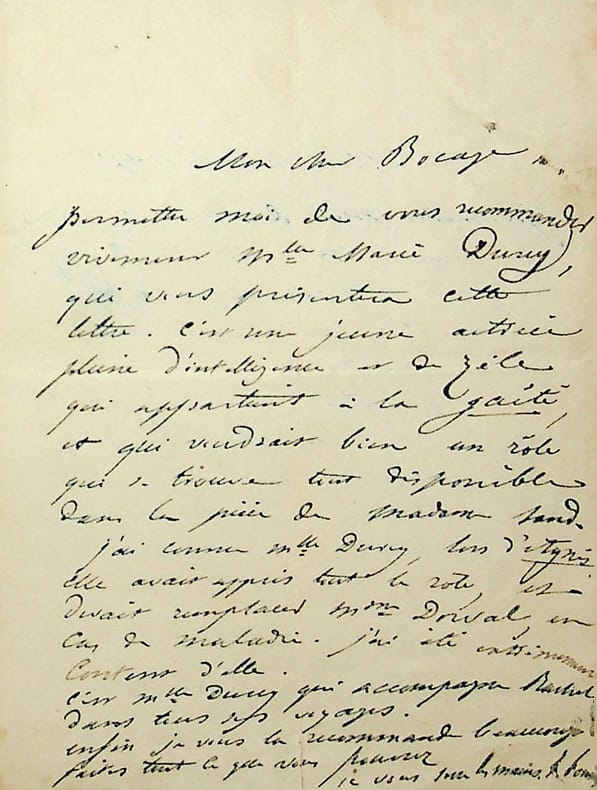 Mon cher Bocage ...
permettez moi de vous recommander
vivement Mlle Marie Durey,
qui vous présentera cette
lettre. C'est une jeune actrice
pleine d'intelligence et de zèle
qui appartient à la gaité,
et qui voudrait bien un rôle
qui se trouve tout disponible
dans la pièce de madame Sand.
j'ai connu Mlle Durey, lors d'Agnès
elle avait appris tout le rôle, et
devait remplacer Mme Dorval, en
cas de maladie. j'ai été
content d'elle.
c'est Mlle Durey qui accompagne Rachel
dans tous ses voyages.
enfin je vous la recommande beaucoup
faites tout ce que vous pourrez
je vous serre les mains.